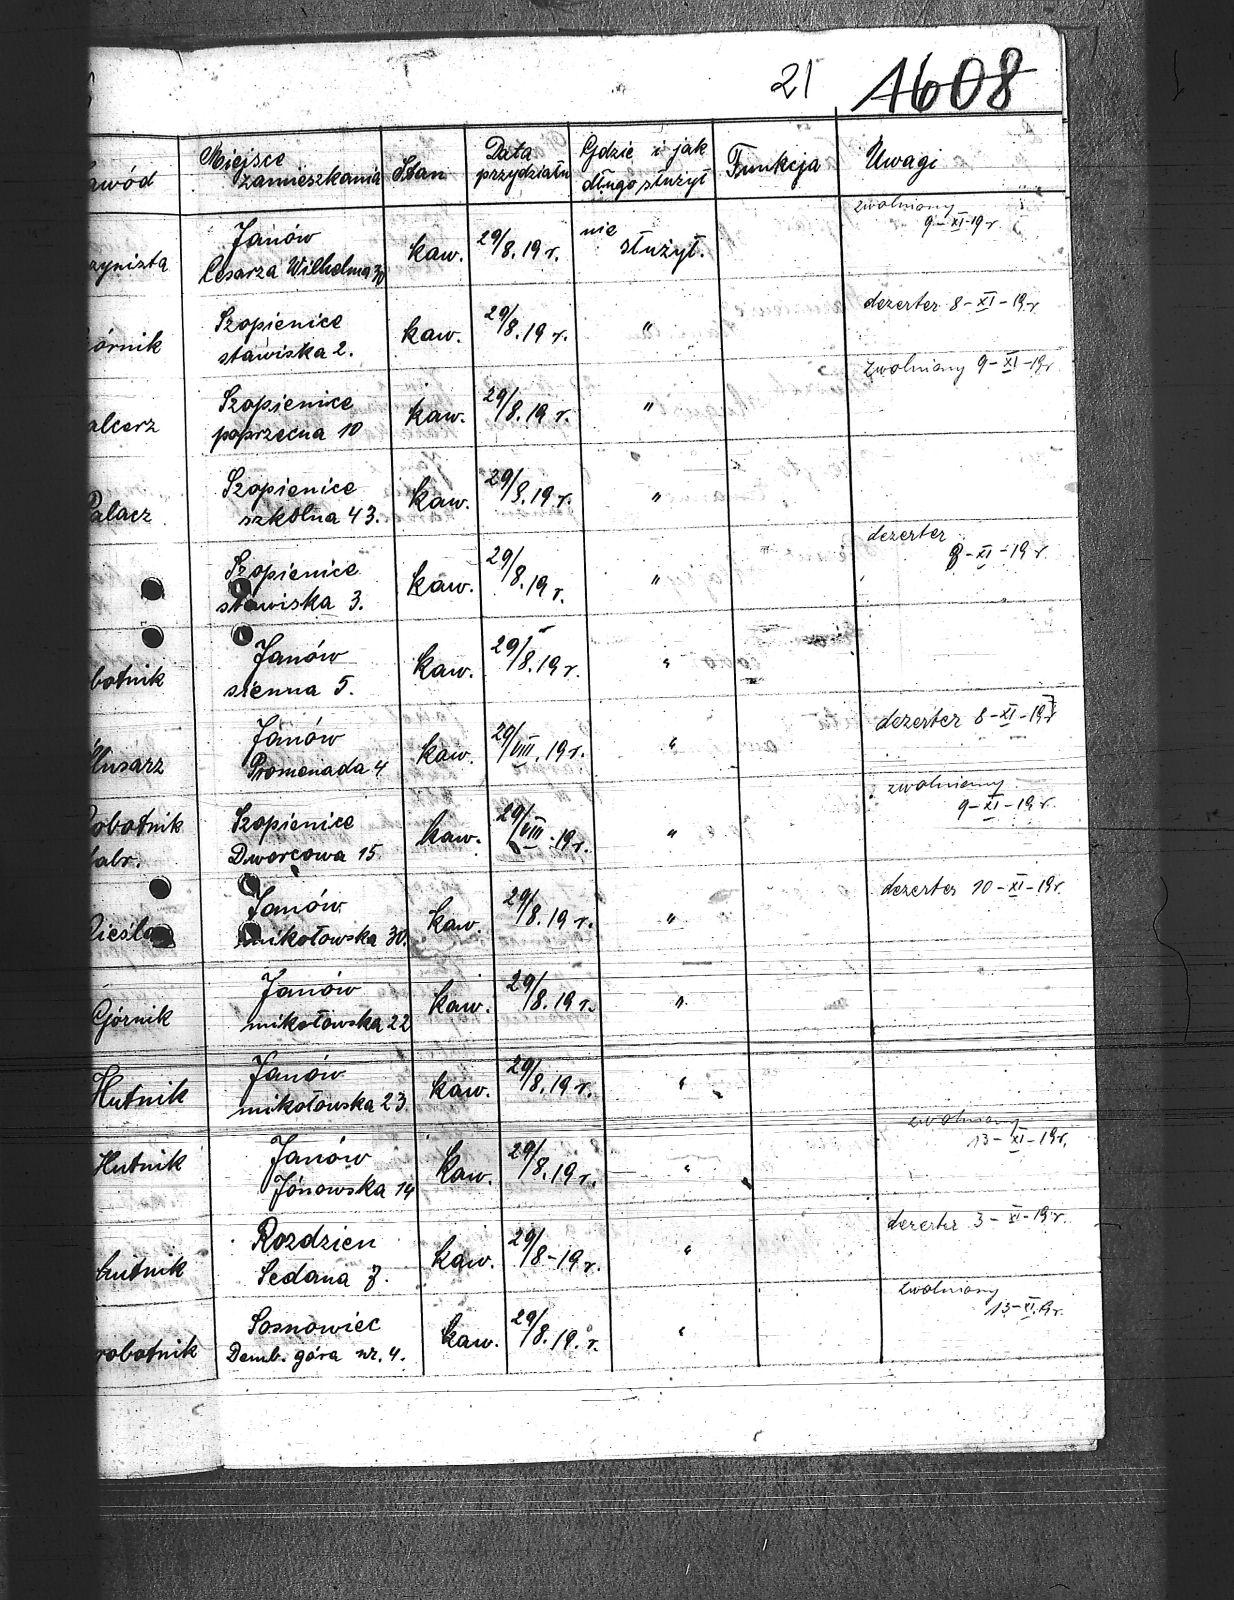 21 1608
Miejsce zamieszkania Stan Data przydziału Gdzie i jak długo służył Funkcja Uwagi
Janów kaw. 29/8.19 r. nie służył. zwolniony 9-XI-19 r.
Cesarza Wilhelma
órnik Szopienice kaw. 29/8.19 r. " dezerter 8-XI-19 r.
stawiska 2.
alcerz Szopienice kaw. 29/8.19 r. " zwolniony 9-XI-19r.
poprzeczna 10
Palacz Szopienice kaw. 29/8.19 r. "
szkolna 43.
Szopienice kaw. 29/8.19 r. " dezerter 8-XI-19 r.
stawiska 3.
botnik Janów kaw. 29/8.19 r. "
sienna 5.
lusarz Janów kaw. 29/VIII.19 r. " dezerter 8-XI-19r
Promenada 4
Robotnik Szopienice kaw. 29/VIII-19 r. " zwolniony 9-XI-19 r.
fabr. Dworcowa 15
Janów kaw. 29/8.19 r. " dezerter 10-XI-19r.
mikołowska 30.
Górnik Janów kaw. 29/8.19 r. "
mikołowska 22
Hutnik Janów kaw. 29/8.19 r. "
mikołowska 23.
Hutnik Janów kaw. 29/8.19 r. " zwolniony 13-XI-19r.
Jónowska 14
hutnik Rozdzien kaw. 29/8-19 r. " dezerter 3-XI-19r.
Sedana 7.
robotnik Sosnowiec kaw. 29/8.19. r. " zwolniony 13-XI.19r.
Demb. góra nr. 4.